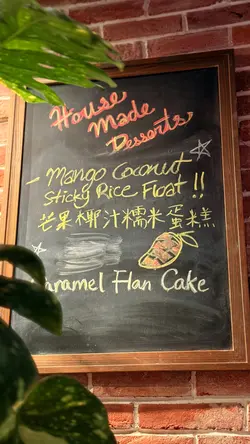 House
Made
Desserts
- Mango Coconut
Sticky Rice Float !!
芒果椰汁糯米蛋糕
Caramel Flan Cake